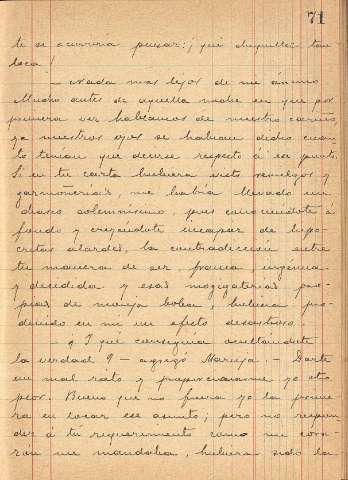 71
te se ocurriría pensar: ¡qué chiquilla tan
loca!
— Nada mas lejos de mi ánimo
Mucho antes de aquella noche en que por
primera vez hablamos de nuestro cariño,
ya nuestros ojos se habían dicho cuan-
to tenían que decirse respecto á ese punto.
Si en tu carta hubiera visto remilgos y
gazmoñerías, me habría llevado un
chasco solemnísimo, pues conociéndote á
fondo y creyéndote incapaz de hipó-
critas alardes, la contradicción entre
tu manera de ser, franca, ingénua
y decidida y esas mogigaterías pro-
pias de monja boba, hubiera pro-
ducido en mi un efecto desastroso.
— ¿Y que conseguía ocultándote
la verdad? — agregó Maruja. — Darte
un mal rato y proporcionarme yo otro
peor. Bueno que no fuera yo la prime-
ra en tocar ese asunto; pero no respon-
der á tu requerimiento como mi cora-
zón me mandaba, hubiera sido la-